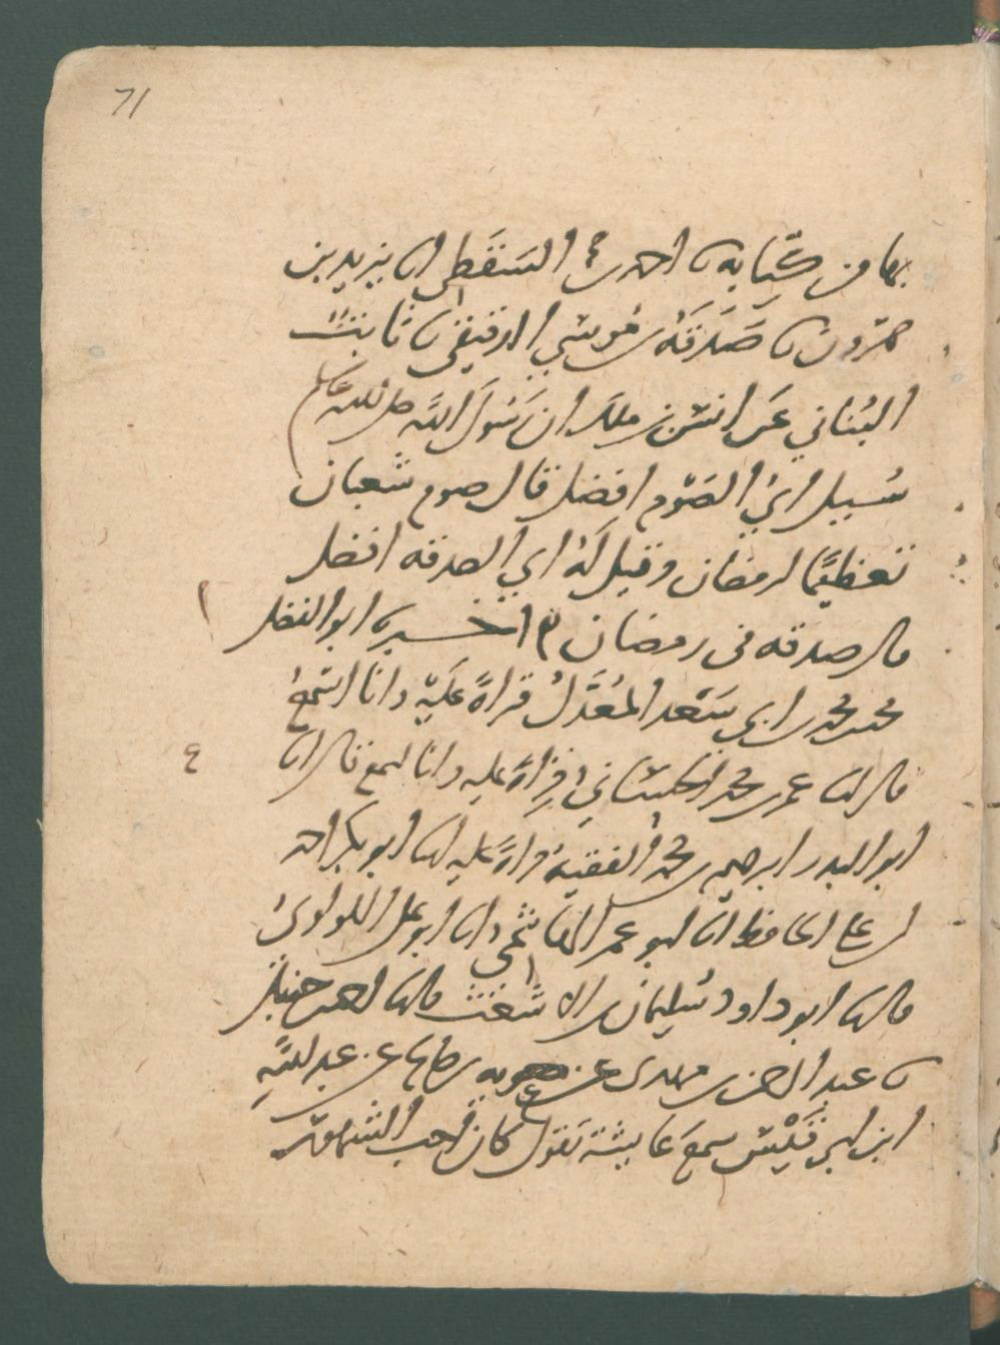 71
بها من كتابه نا احمد بن محمد السَقَطي انا يزيد بن
هٰرون نا صَدَقَةُ بن مُوسَي الدقيقي نا ثابت
البُناني عَن انس بن ملك ان رسُولَ اللَّه صلى الله عليه وسلم
سُيل ايُ الصَوْم افضل قال صوم شعبان
تعظيمًا لرمضان وقيل لَهُ اي الصدقه افضل
قال صدقه في رمضان اخبرنا ابو الفضل
محمد بن محمد بن ابي سَعْد المُعَدَّلُ قراةً عَلَيْهِ وانا اسْمَعُ
قال انا عمر بن محمد قِراةً عليه وانا اسمع قال انا
ابو البدر ابرهيم بن محمد الفقيهُ قراةً عليه انا ابو بكر احمد
بن علي الحافظ انا ابو عمر الهاشمي انا ابو علي اللولوىُ
قال نا ابو داود سُليمان بن الاشعَث قال نا احمد بن حنبل
نا عبد الرحمن بن مهدى عن معويه بن صالح عن عبد اللَّهِ
ابن ابي قَيْس سمعَ عايشة تقول كان احب الشهور